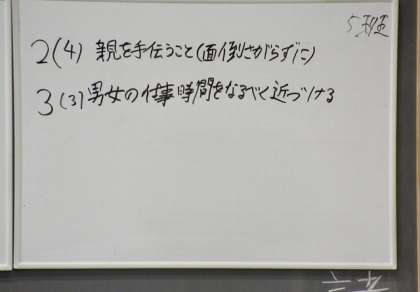 5班
2(4) 親を手伝うこと(面倒さがらずに)
3(3) 男女の仕事時間をなるべく近づける